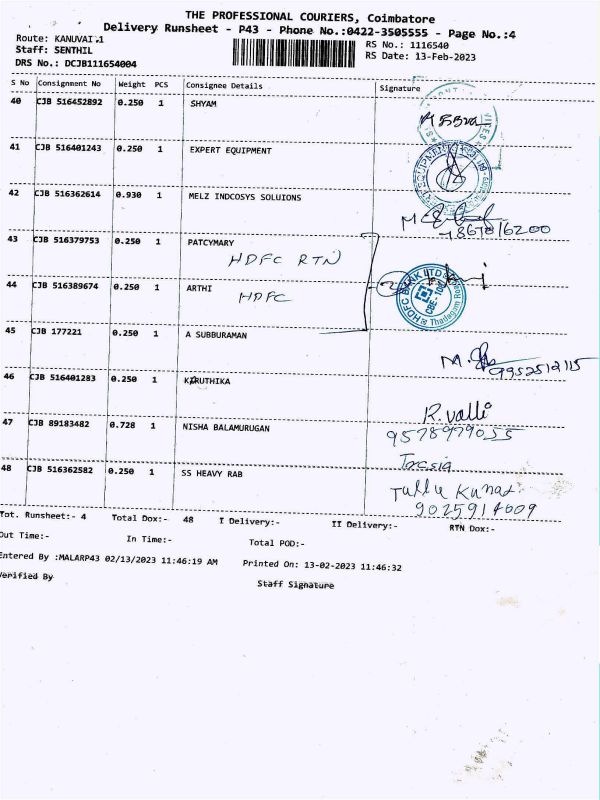 THE PROFESSIONAL COURIERS, Coimbatore
Delivery Runsheet - P43 - Phone No.:0422-3505555 - Page No.:4
Route: KANUVAI.1
RS No.: 1116540
Staff: SENTHIL
RS Date: 13-Feb-2023
DRS No.: DCJB111654004
S No Consignment No Weight PCS Consignee Details Signature
40 CJB 516452892 0.250 1 SHYAM
41 CJB 516401243 0.250 1 EXPERT EQUIPMENT
42 CJB 516362614 0.930 1 MELZ INDCOSYS SOLUIONS
43 CJB 516379753 0.250 1 PATCYMARY
HDFC RTN
44 CJB 516389674 0.250 1 ARTHI
HDFC
HDFC BANK LTD
CBE-100
Thadagam Road
45 CJB 177221 0.250 1 A SUBBURAMAN
9952512115
46 CJB 516401283 0.250 1 KARUTHIKA
R. valli
47 CJB 89183482 0.728 1 NISHA BALAMURUGAN
9578979055
48 CJB 516362582 0.250 1 SS HEAVY RAB
9025914609
Tot. Runsheet:- 4 Total Dox:- 48 I Delivery:- II Delivery:- RTN Dox:-
Out Time:- In Time:- Total POD:-
Entered By :MALARP43 02/13/2023 11:46:19 AM Printed On: 13-02-2023 11:46:32
Verified By Staff Signature